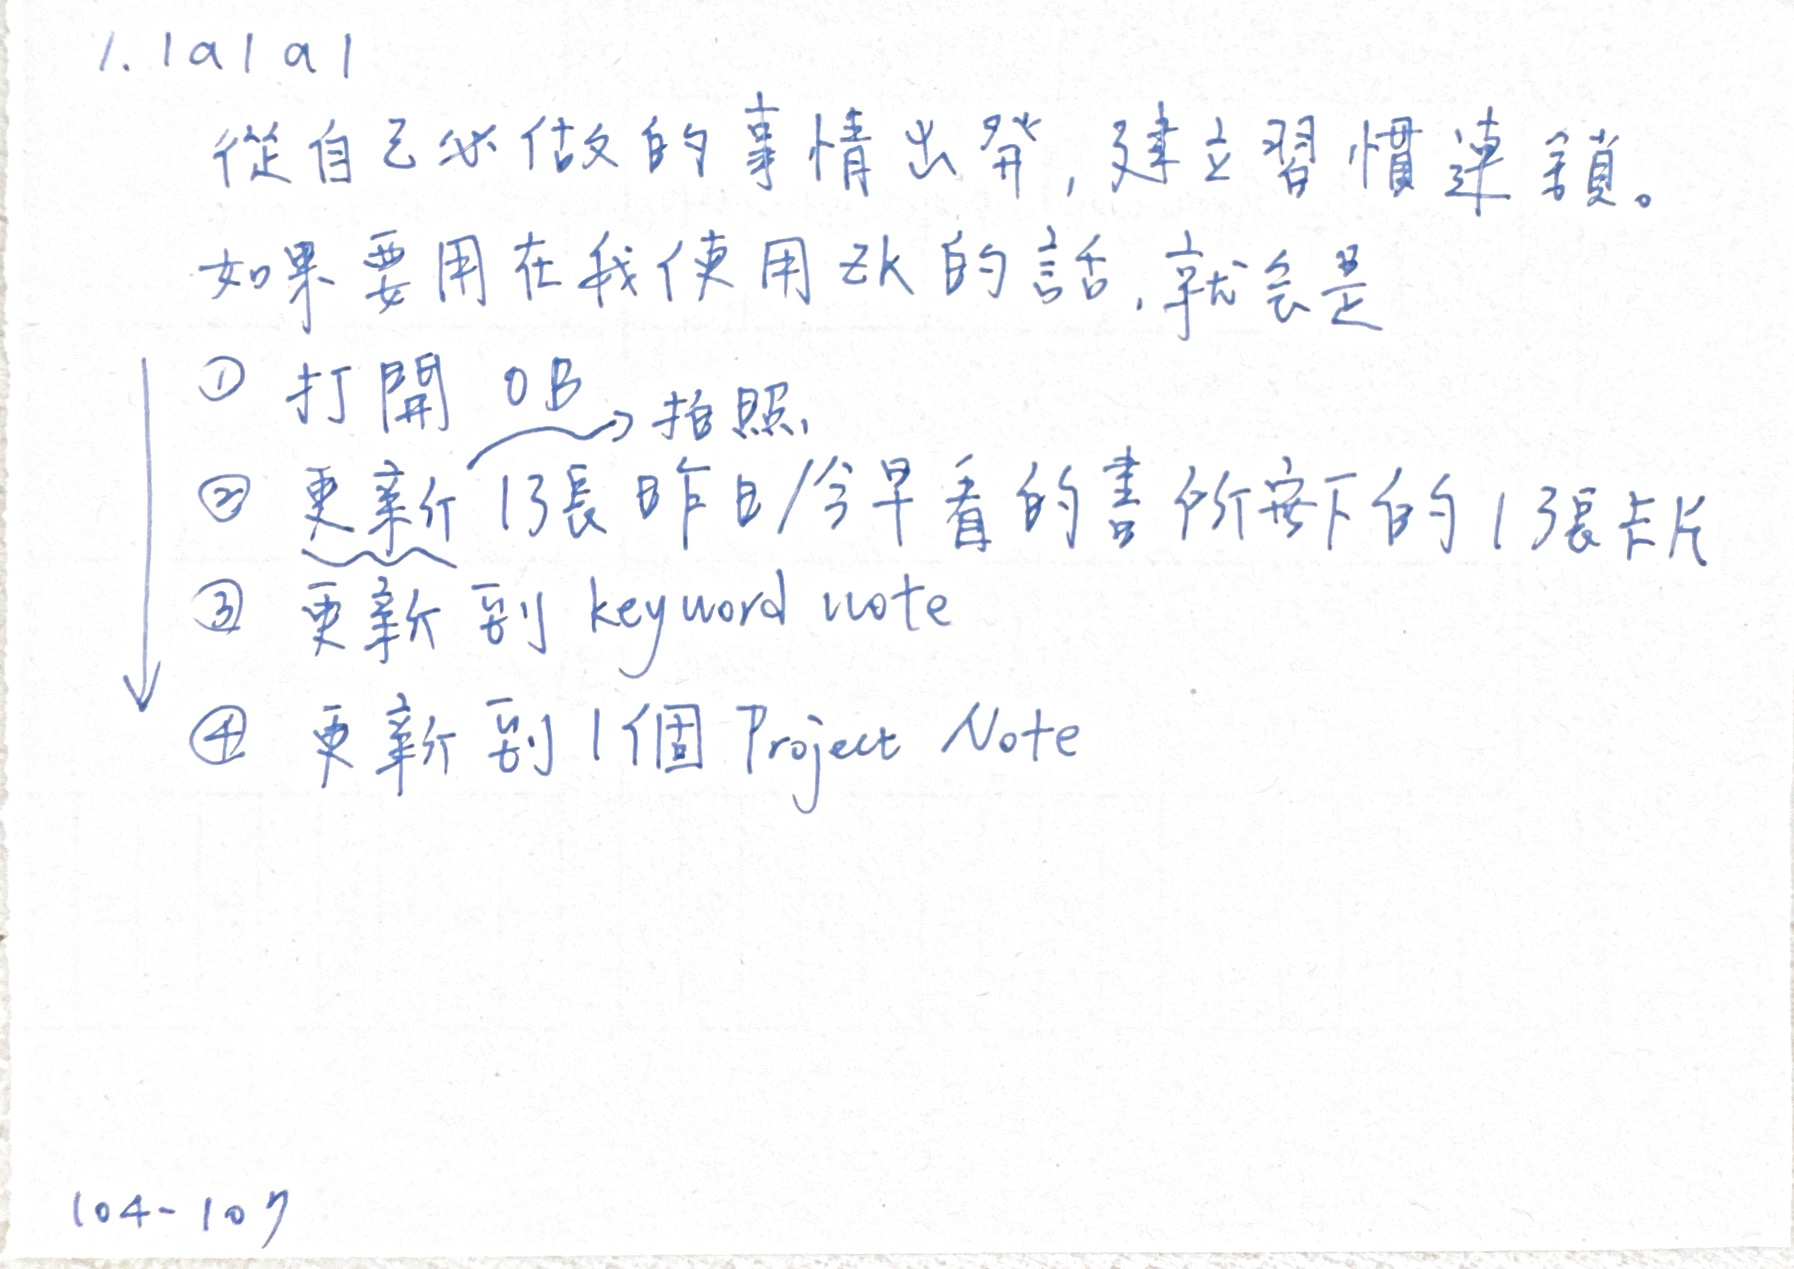 1.1a1a1
從自己必做的事情出発,建立習慣連鎖。
如果要用在我使用ZK的話,就会是
① 打開 OB
拍照,
② 更新 1張昨日/今早看的書所寫下的1張卡片
③ 更新到 keyword note
④ 更新到1個 Project Note
104-107